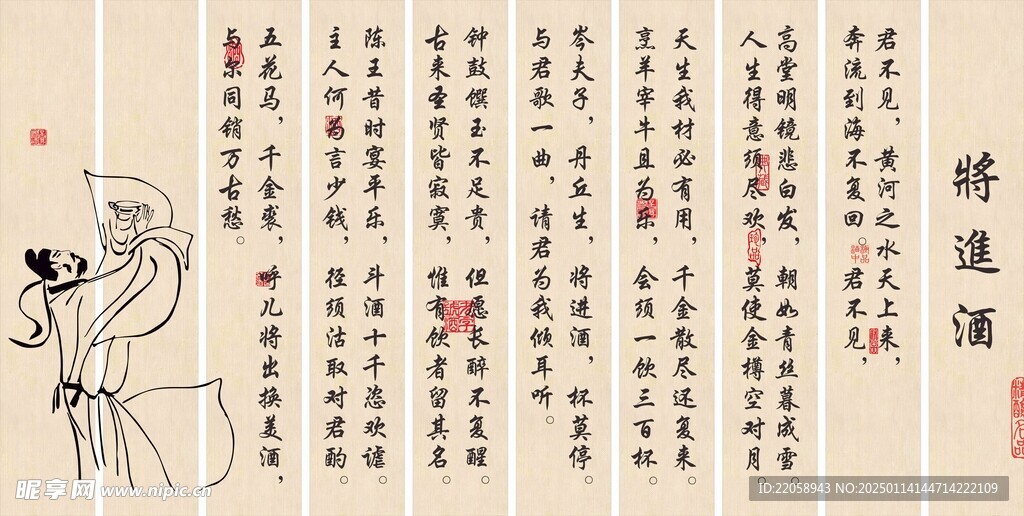 將進酒
君不见，黄河之水天上来，
奔流到海不复回。君不见，
高堂明镜悲白发，朝如青丝暮成雪。
人生得意须尽欢，莫使金樽空对月。
天生我材必有用，千金散尽还复来。
烹羊宰牛且为乐，会须一饮三百杯。
岑夫子，丹丘生，将进酒，杯莫停。
与君歌一曲，请君为我倾耳听。
钟鼓馔玉不足贵，但愿长醉不复醒。
古来圣贤皆寂寞，惟有饮者留其名。
陈王昔时宴平乐，斗酒十千恣欢谑。
主人何为言少钱，径须沽取对君酌。
五花马，千金裘，呼儿将出换美酒，
与尔同销万古愁。
昵享网 www.nipic.cn
ID:22058943 NO:20250114144714222109